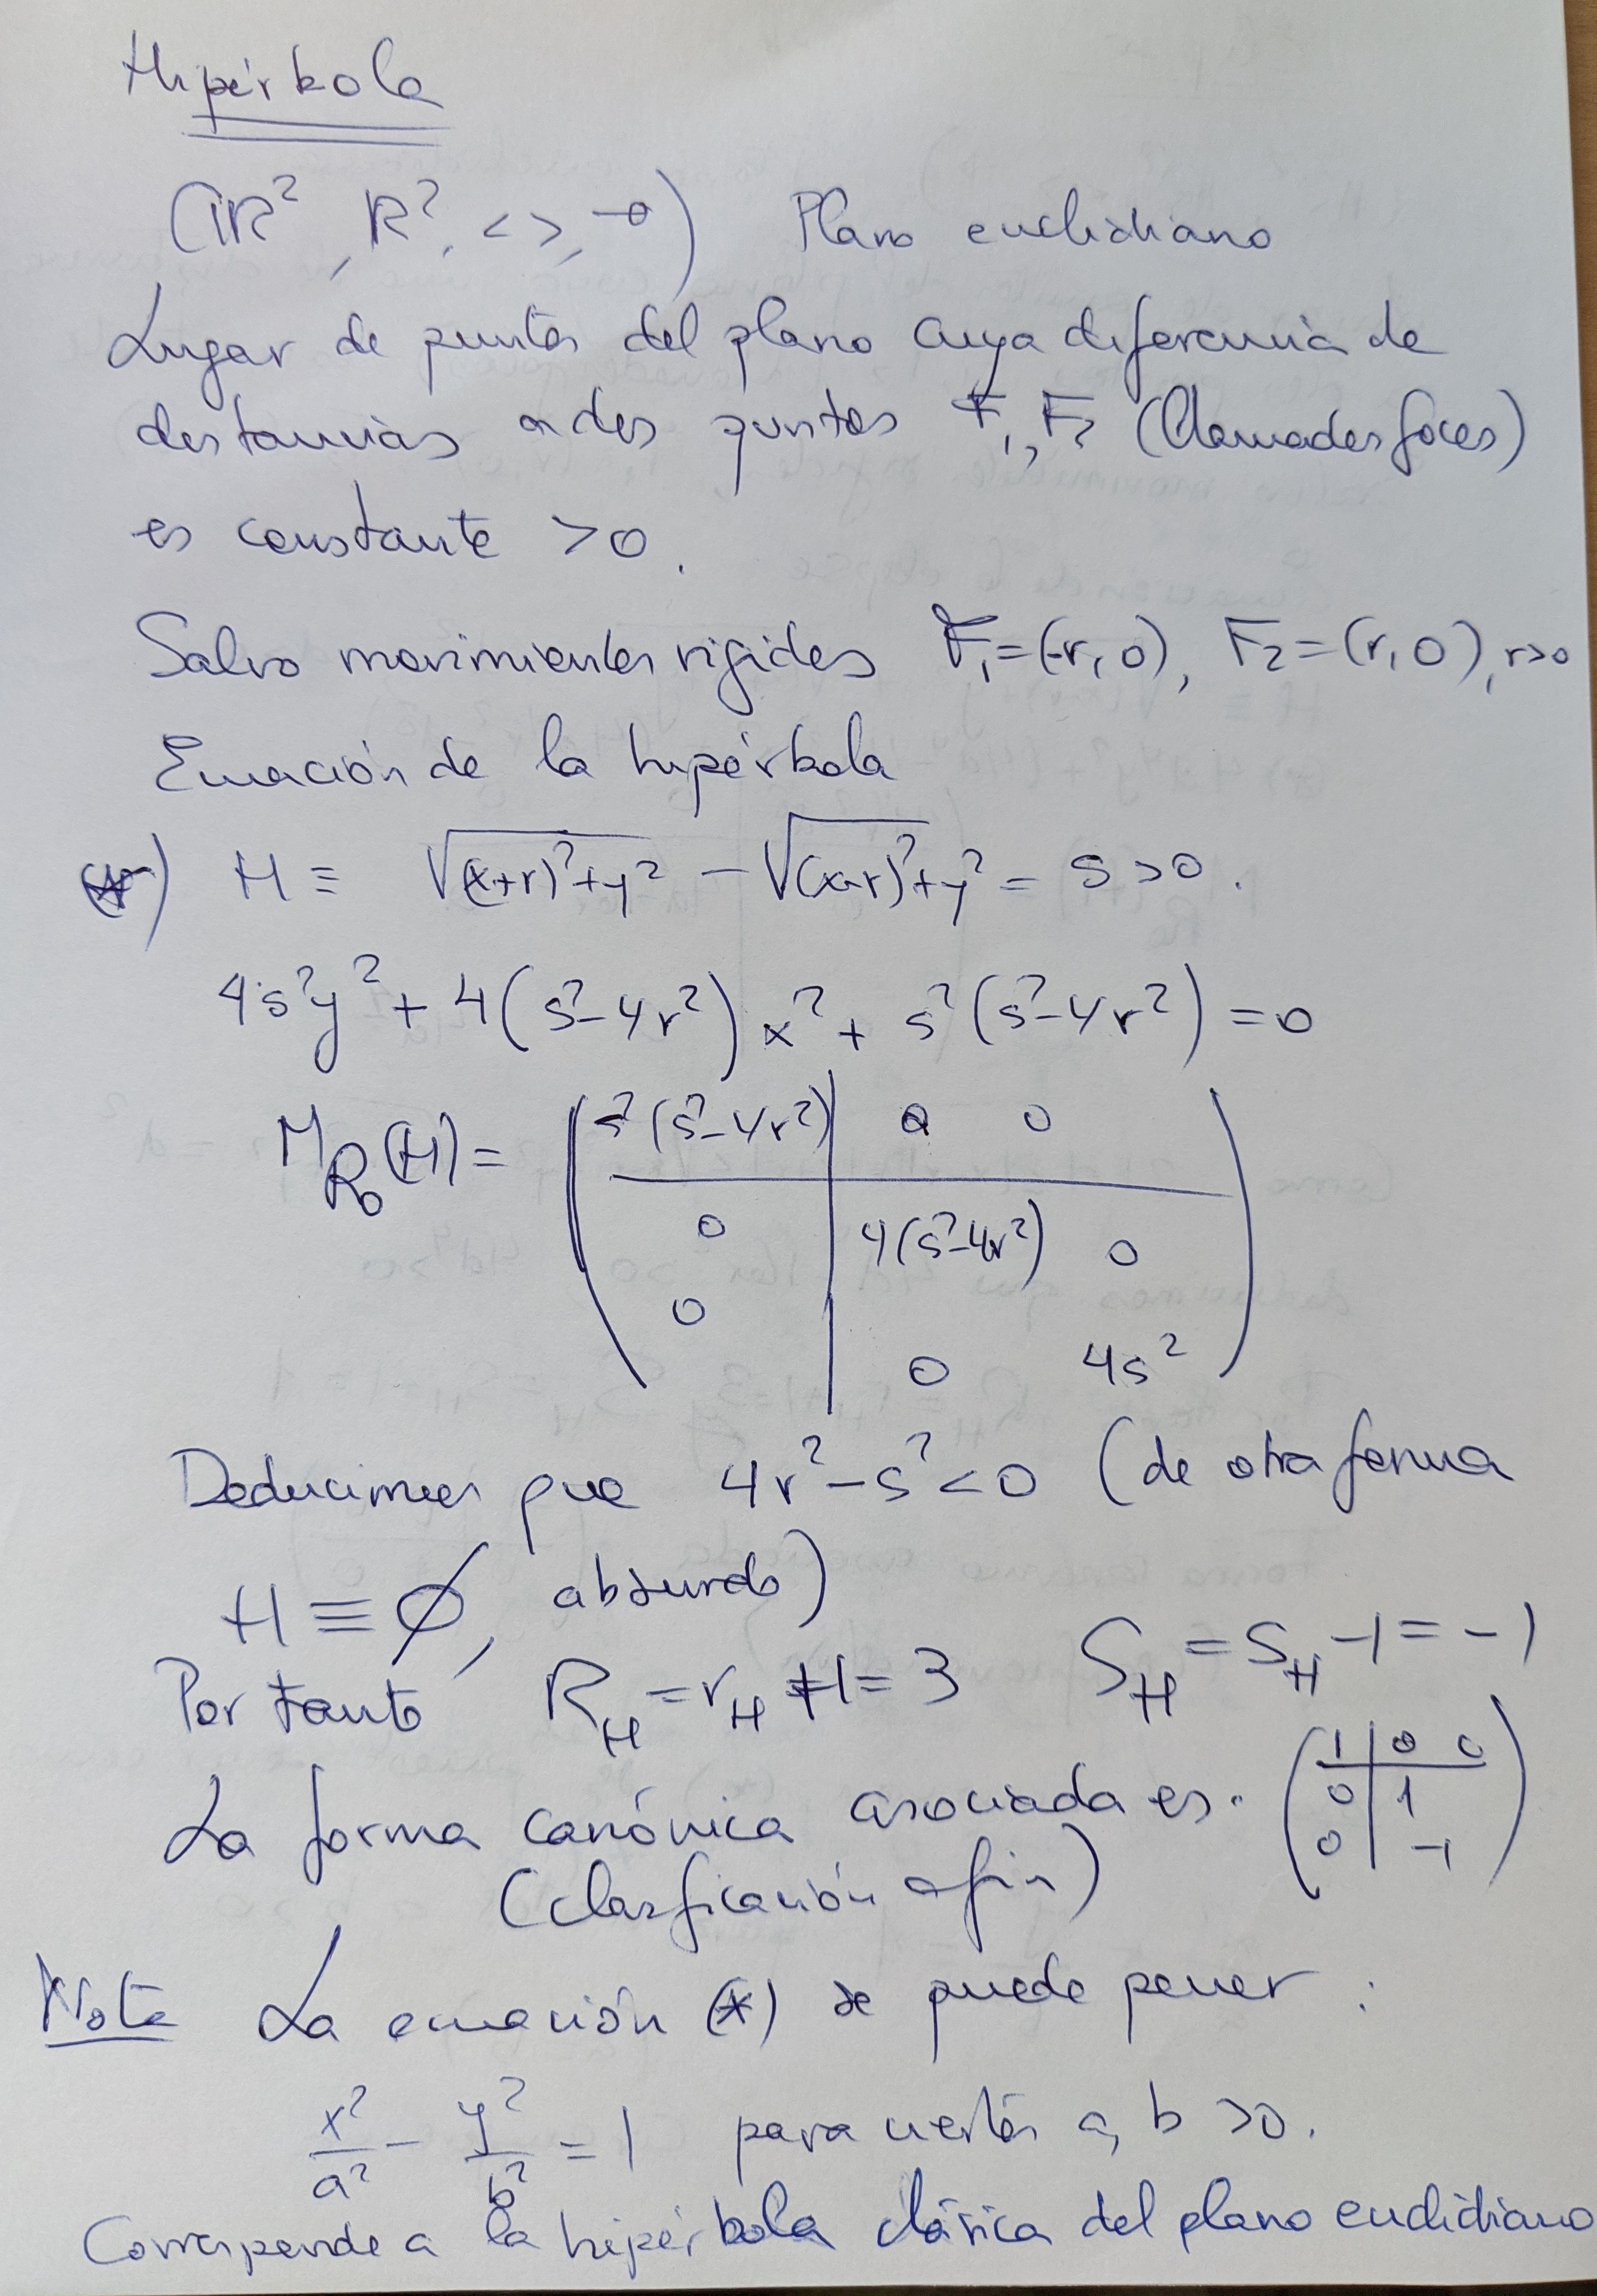 Hipérbola
(ℝ², ℝ², < >, →) Plano euclidiano
Lugar de puntos del plano cuya diferencia de
distancias a dos puntos F₁, F₂ (llamados focos)
es constante >0.
Salvo movimientos rígidos F₁=(-r,0), F₂=(r,0), r>0
Ecuación de la hipérbola
(*) H ≡ √((x+r)²+y²) - √((x-r)²+y²) = s >0.
4s²y² + 4(s²-4r²)x² + s²(s²-4r²) = 0
M_R₀(H) = ( s²(s²-4r²) | 0 0
0 | 4(s²-4r²) 0
0 | 0 4s² )
Deducimos que 4r²-s² <0 (de otra forma
H ≡ ∅, absurdo)
Por tanto R_H = r_H +1 = 3 S_H = s_H -1 = -1
La forma canónica asociada es. ( 1 | 0 0
0 | 1
0 | -1 )
(clasificación afín)
Nota La ecuación (*) se puede poner :
x²/a² - y²/b² = 1 para ciertos a, b >0.
Corresponde a la hipérbola clásica del plano euclidiano